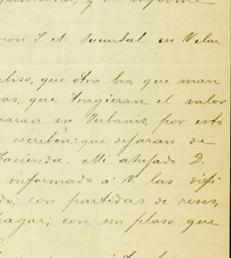 con S. A. Sucursal en Velar
aliso, que otra vez que man
as, que tragieran el valor
paran en Terbanis, por esto
escriben: que dejaran de
Hacienda. Mi ahijado D.
informado á V. las difi
do, con partidas de reses,
pagar, con un plaso que